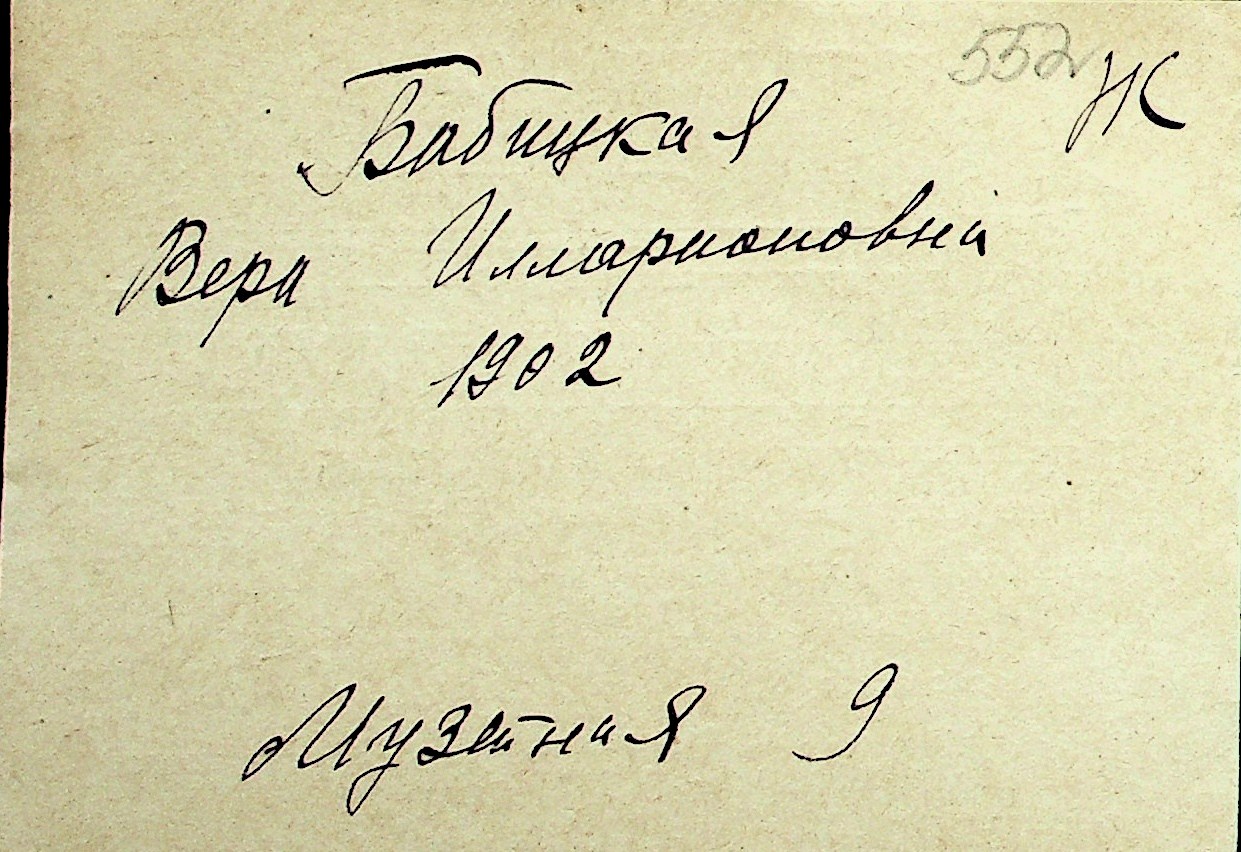 552 Ж
Бабицкая
Вера Илларионовна
1902
Музейная 9